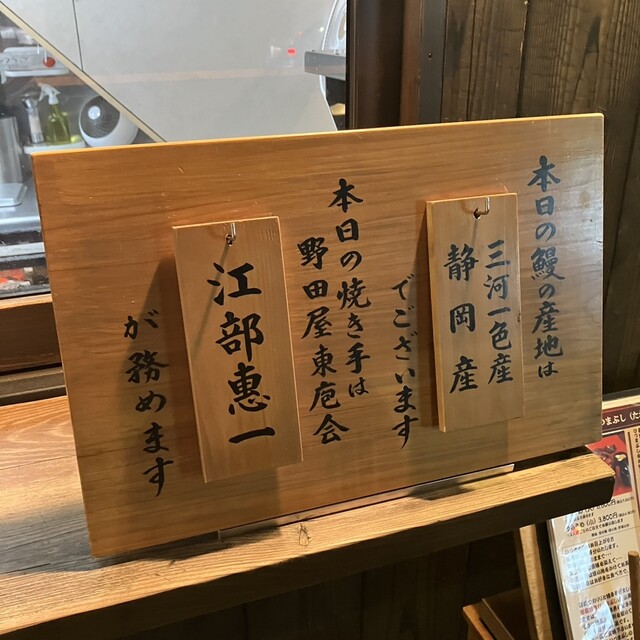 本日の鰻の産地は
三河一色産
静岡産
でございます
本日の焼き手は
野田屋東庖会
江部恵一
が務めます
3,800円